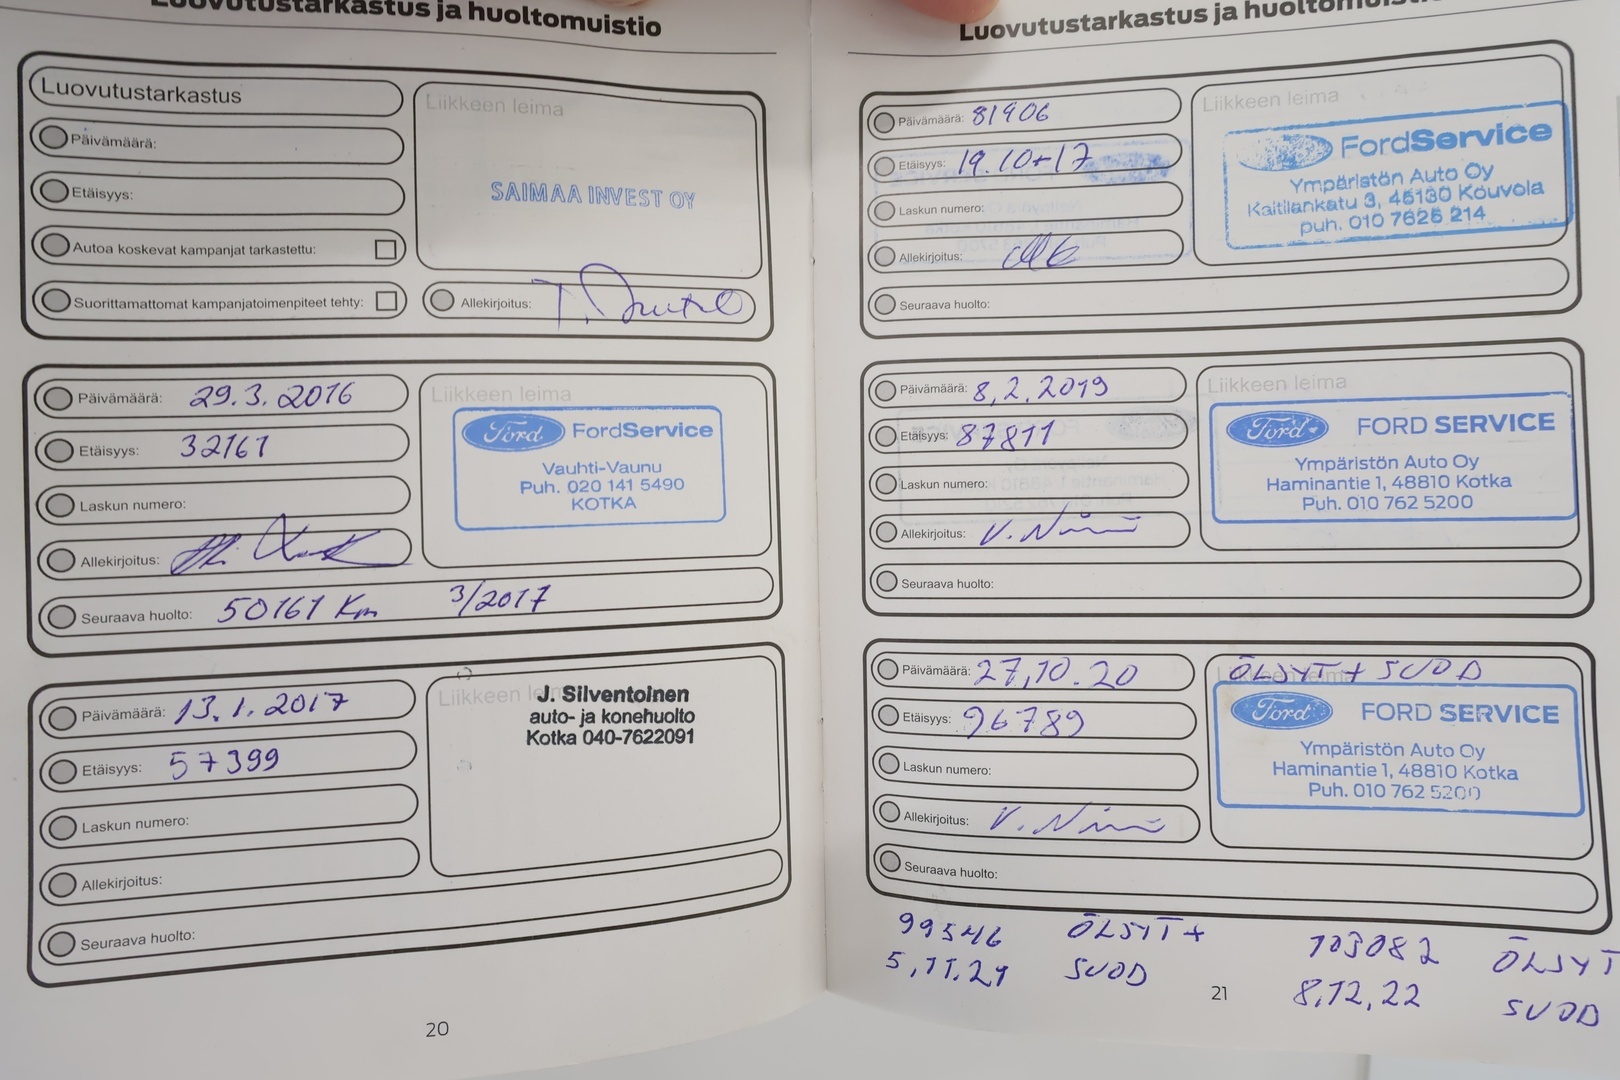 Luovutustarkastus ja huoltomuistio
Luovutustarkastus
Päivämäärä:
Etäisyys:
Autoa koskevat kampanjat tarkastettu:
Suorittamattomat kampanjatoimenpiteet tehty:
Liikkeen leima
SAIMAA INVEST OY
Allekirjoitus:
Päivämäärä: 29.3.2016
Etäisyys: 32161
Laskun numero:
Allekirjoitus:
Seuraava huolto: 50161 Km 3/2017
Liikkeen leima
Ford FordService
Vauhti-Vaunu
Puh. 020 141 5490
KOTKA
Päivämäärä: 13.1.2017
Etäisyys: 57399
Laskun numero:
Allekirjoitus:
Seuraava huolto:
Liikkeen
J. Silventoinen
auto- ja konehuolto
Kotka 040-7622091
20
Luovutustarkastus ja huoltomuistio
Päivämäärä: 81906
Etäisyys: 19.10-17
Laskun numero:
Allekirjoitus:
Seuraava huolto:
Liikkeen leima
FordService
Ympäristön Auto Oy
Kaitilankatu 3, 45130 Kouvola
puh. 010 7625 214
Päivämäärä: 8.2.2019
Etäisyys: 87811
Laskun numero:
Allekirjoitus: V. Niimi
Seuraava huolto:
Liikkeen leima
Ford FORD SERVICE
Ympäristön Auto Oy
Haminantie 1, 48810 Kotka
Puh. 010 762 5200
Päivämäärä: 27.10.20
Etäisyys: 96789
Laskun numero:
Allekirjoitus: V. Niimi
Seuraava huolto:
Liikkeen leima
ÖLJYT + SUOD
Ford FORD SERVICE
Ympäristön Auto Oy
Haminantie 1, 48810 Kotka
Puh. 010 762 5200
99546 ÖLJYT +
5.11.21 SUOD
103082 ÖLJYT
8.12.22 SUOD
21